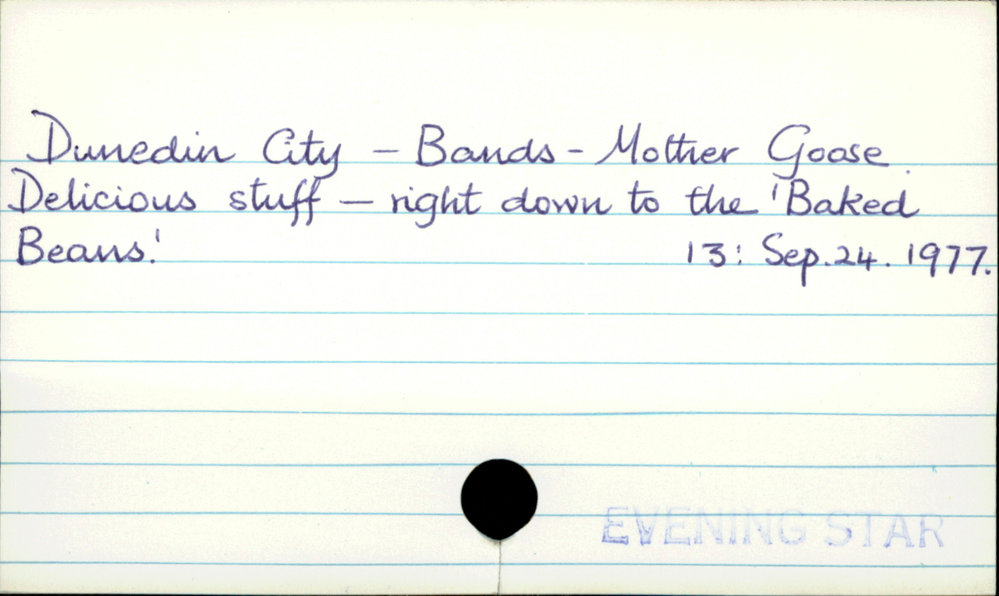 Dunedin City - Bands - Mother Goose.
Delicious stuff - right down to the 'Baked
Beans.' 13: Sep.24. 1977.
EVENING STAR